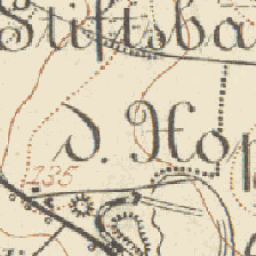 Stiftsba
d. Hop
235